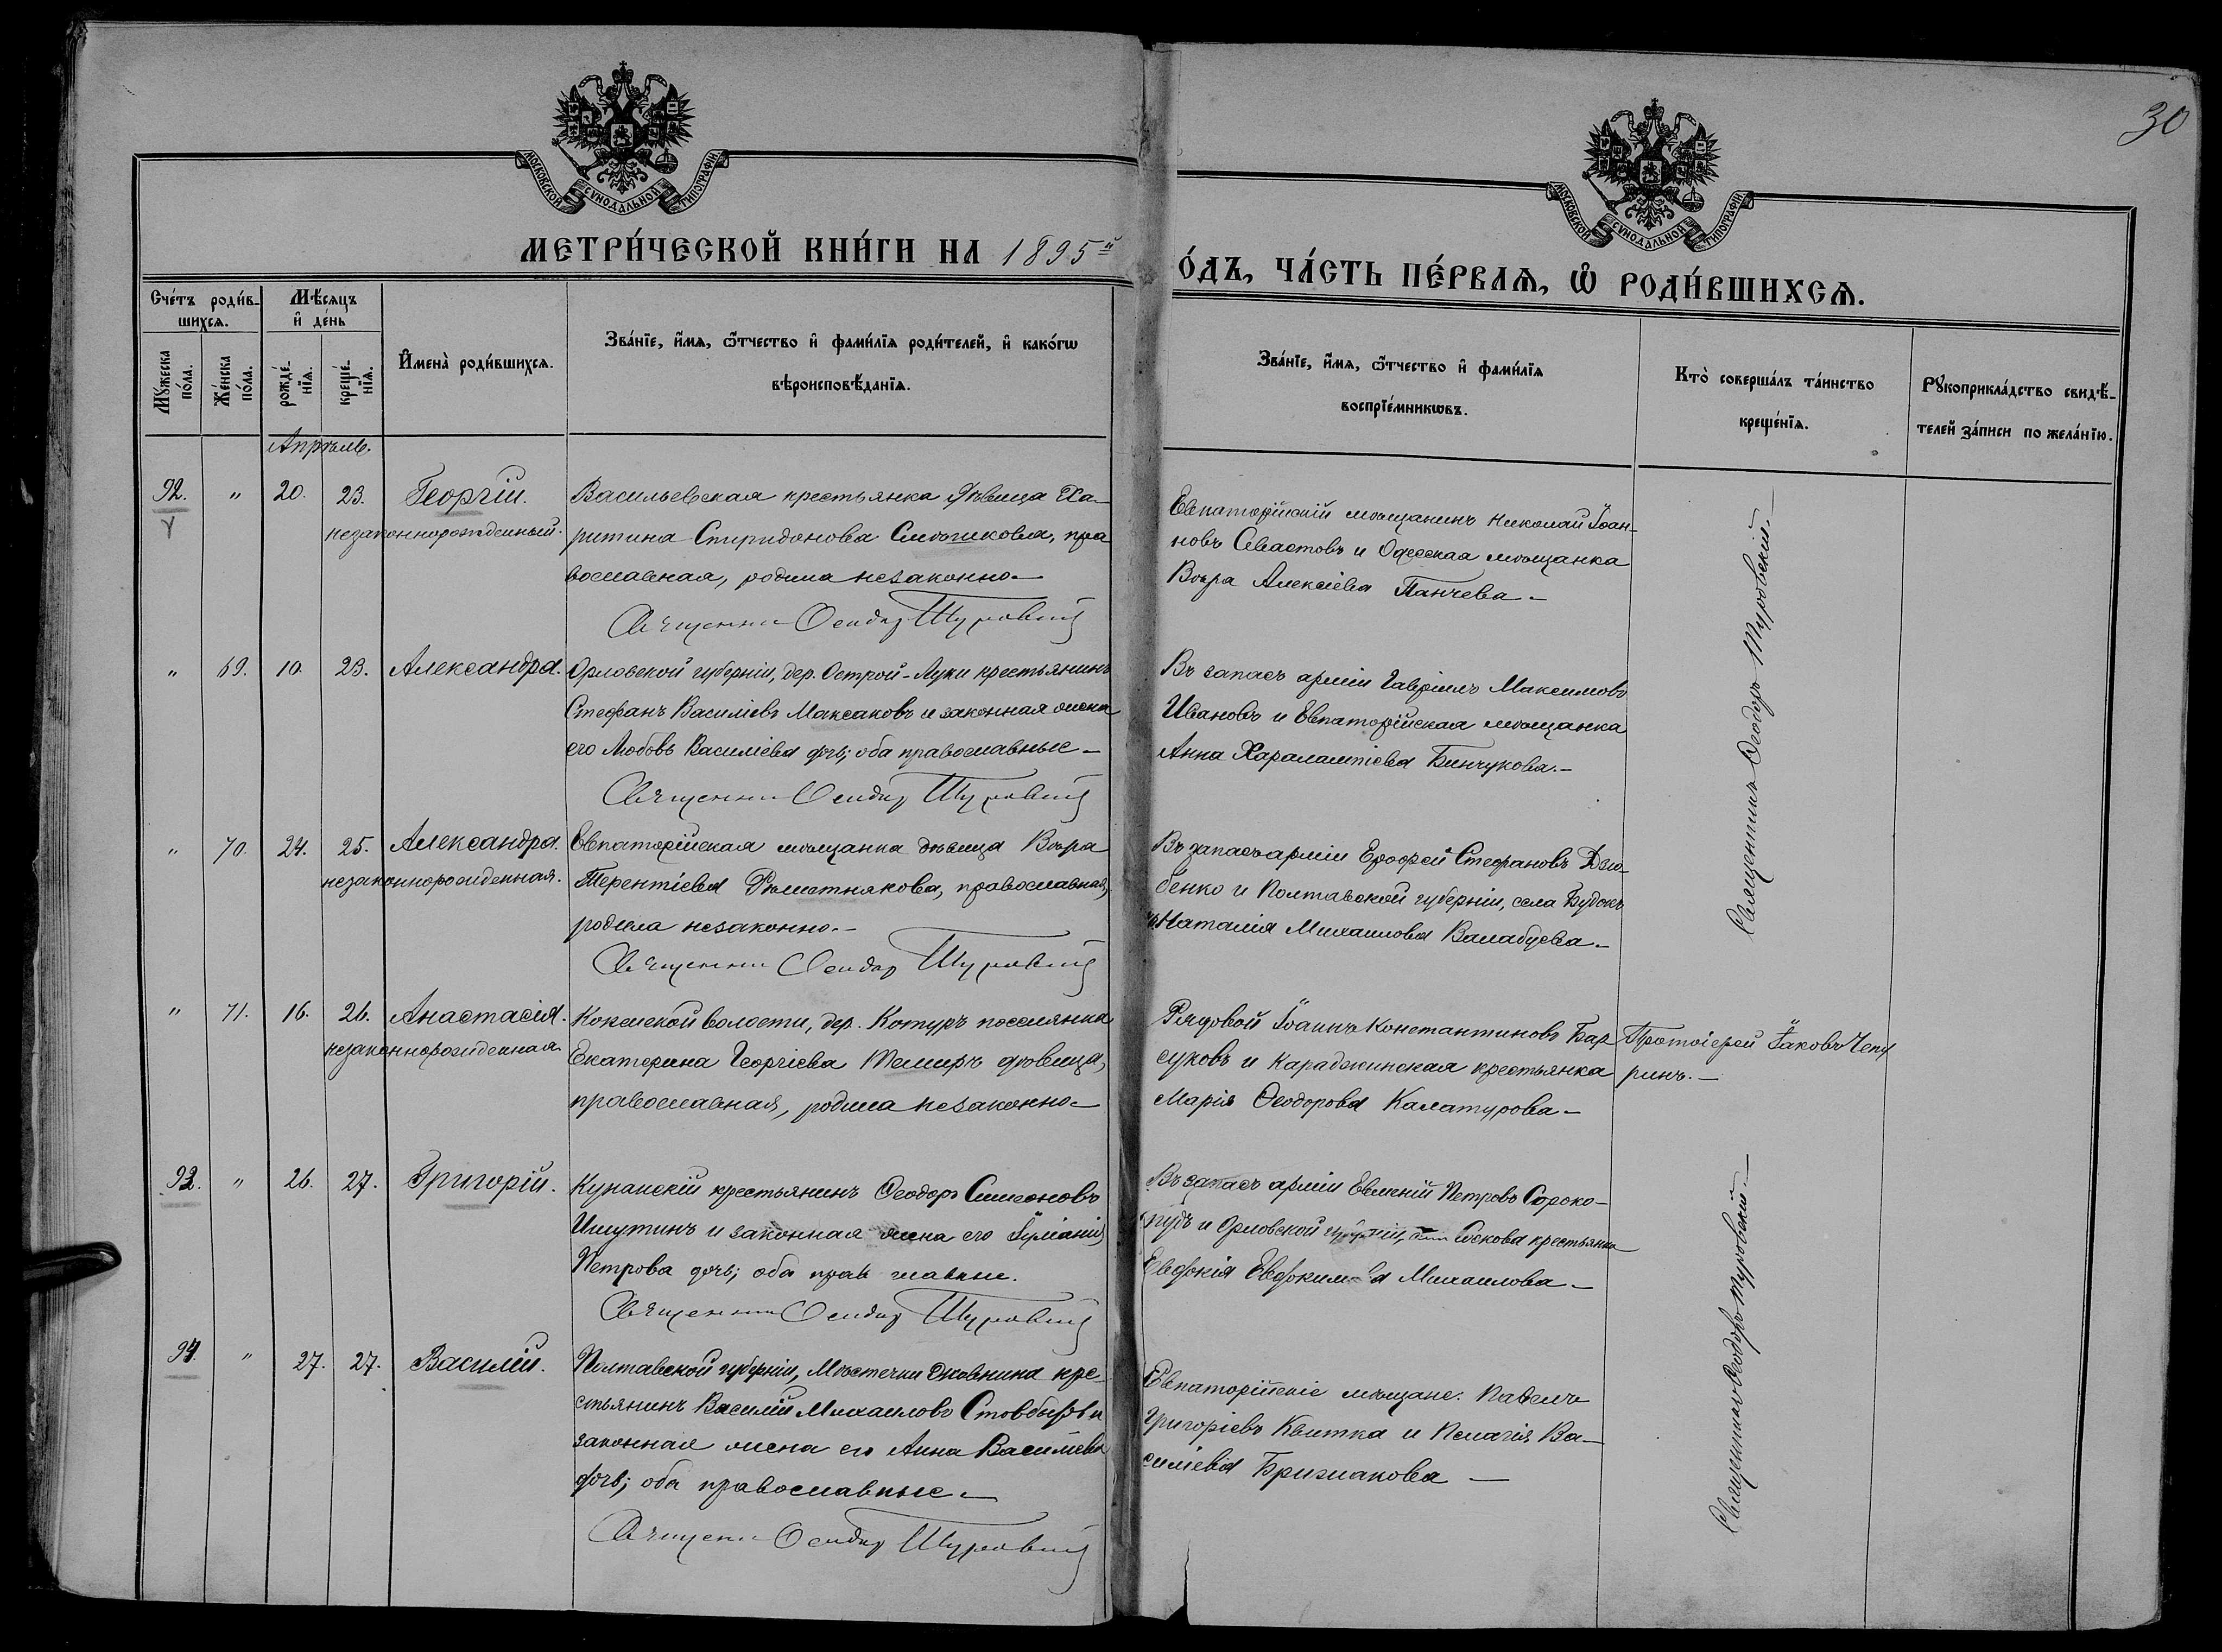 30
МОСКОВСКОЙ СѴНОДАЛЬНОЙ ТИПОГРАФІИ.
МОСКОВСКОЙ СѴНОДАЛЬНОЙ ТИПОГРАФІИ.
МЕТРИ́ЧЕСКОЙ КНИ́ГИ НА 1895й
О́ДЪ, ЧА́СТЬ ПЕ́РВАѦ, Ѡ РОДИ́ВШИХСѦ.
Сче́тъ роди́в-
шихсѧ.
Мѣ́сѧцъ
и҆ де́нь
Мꙋ́жеска по́ла.
Же́нска по́ла.
рожде́нїѧ.
креще́нїѧ.
И҆мена̀ роди́вшихсѧ.
Зва́нїе, и҆́мѧ, ѻ҆́тчество и҆ фамн́лїѧ роди́телей, и҆ како́гѡ
вѣроисповѣ́данїѧ.
Зва́нїе, и҆́мѧ, ѻ҆́тчество и҆ фами́лїѧ
воспрїе́мникѡвъ.
Кто̀ соверша́лъ та́инство
креще́нїѧ.
Рꙋкоприкла́дство свидѣ́-
телей за́писи по жела́нїю.
Апрѣль.
92. " 20. 23. Георгій.
незаконнорожденный.
Васильевская крестьянка дѣвица Ха-
ритина Спиридонова, пра
вославная, родила незаконно.—
Священник Феодор Туровский
Евпаторійскій мѣщанинъ Николай Іоан-
новъ Севастовъ и Одесская мѣщанка
Вѣра Алексіева Панчева.—
Священникъ Ѳеодоръ Туровскій.—
" 69. 10. 23. Александра.
Орловской губерніи, дер. Острой-Луки крестьянинъ
Стефанъ Василіевъ Максаковъ и законная жена
его Любовь Василіева дочь; оба православные.—
Священник Феодор Туровский
Въ запасѣ арміи Гавріилъ Максимовъ
Ивановъ и Евпаторійская мѣщанка
Анна Харалампіева Бинчукова.—
" 70. 24. 25. Александра.
незаконнорожденная.
Евпаторійская мѣщанка дѣвица Вѣра
Терентіева, православная,
родила незаконно.—
Священник Феодор Туровский
Въ запасѣ арміи Ерофей Стефановъ Дзю-
бенко и Полтавской губерніи, села Будокъ
Наталія Михаилова Валабуева.—
" 71. 16. 26. Анастасія.
незаконнорожденная
волости, дер. Котуръ поселянка
Екатерина Георгіева Темиръ дѣвица,
православная, родила незаконно.—
Рядовой Іоаннъ Константиновъ Бар
суковъ и Караджинская крестьянка
Марія Ѳеодорова Калатурова.—
Протоіерей Іаковъ Чепу
ринъ.—
93. " 26. 27. Григорій.
Кунанскій крестьянинъ Ѳеодоръ Симеоновъ
Ишутинъ и законная жена его Іуліанія
Петрова дочь; оба православные.
Священник Феодор Туровский
Въ запасѣ арміи Евмений Петровъ Сороко-
пудъ и Орловской губерніи, крестьянка
Евдокія Евдокимова Михаилова.—
Священникъ Ѳеодоръ Туровскій.—
94. " 27. 27. Василій.
Полтавской губерніи, Мѣстечки кре-
стьянинъ Василій Михаиловъ и
законная жена его Анна Василіева
дочь; оба православные.—
Священник Феодор Туровский
Евпаторійскіе мѣщане. Павелъ
Григоріевъ Квитка и Пелагія Ва-
силіева Бризнакова —